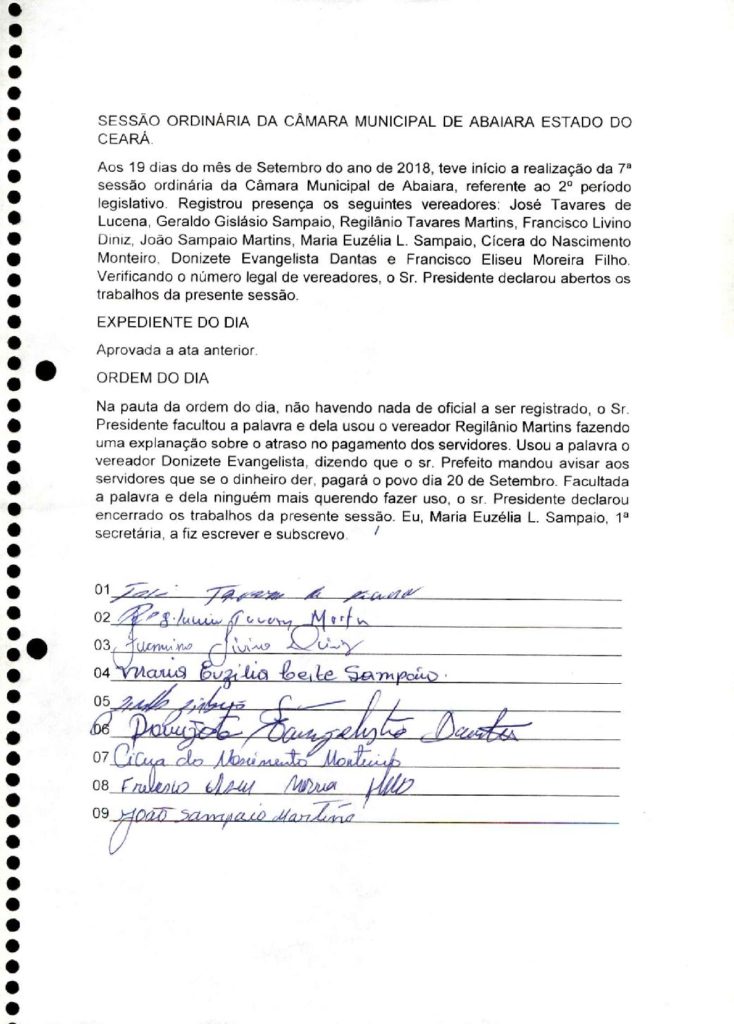 SESSÃO ORDINÁRIA DA CÂMARA MUNICIPAL DE ABAIARA ESTADO DO
CEARÁ.
Aos 19 dias do mês de Setembro do ano de 2018, teve início a realização da 7ª
sessão ordinária da Câmara Municipal de Abaiara, referente ao 2º período
legislativo. Registrou presença os seguintes vereadores: José Tavares de
Lucena, Geraldo Gislásio Sampaio, Regilânio Tavares Martins, Francisco Livino
Diniz, João Sampaio Martins, Maria Euzélia L. Sampaio, Cícera do Nascimento
Monteiro, Donizete Evangelista Dantas e Francisco Eliseu Moreira Filho.
Verificando o número legal de vereadores, o Sr. Presidente declarou abertos os
trabalhos da presente sessão.
EXPEDIENTE DO DIA
Aprovada a ata anterior.
ORDEM DO DIA
Na pauta da ordem do dia, não havendo nada de oficial a ser registrado, o Sr.
Presidente facultou a palavra e dela usou o vereador Regilânio Martins fazendo
uma explanação sobre o atraso no pagamento dos servidores. Usou a palavra o
vereador Donizete Evangelista, dizendo que o sr. Prefeito mandou avisar aos
servidores que se o dinheiro der, pagará o povo dia 20 de Setembro. Facultada
a palavra e dela ninguém mais querendo fazer uso, o sr. Presidente declarou
encerrado os trabalhos da presente sessão. Eu, Maria Euzélia L. Sampaio, 1ª
secretária, a fiz escrever e subscrevo.
01 José Tavares de
02 Regilanio Tavares Martins
03 Francisco Livino Diniz
04 Maria Euzélia Leite Sampaio.
05
06 Donizete Evangelista Dantas
07 Cícera do Nascimento Monteiro
08 Francisco Eliseu Moreira Filho
09 João Sampaio Martins